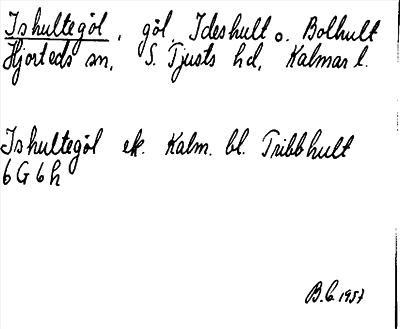 Ishultegöl, göl, Ideshult o. Bolhult
Hjorteds sn, S. Tjusts hd, Kalmar l.
Ishultegöl ek. Kalm. bl. Tribbhult
6G6h
B.C. 1957